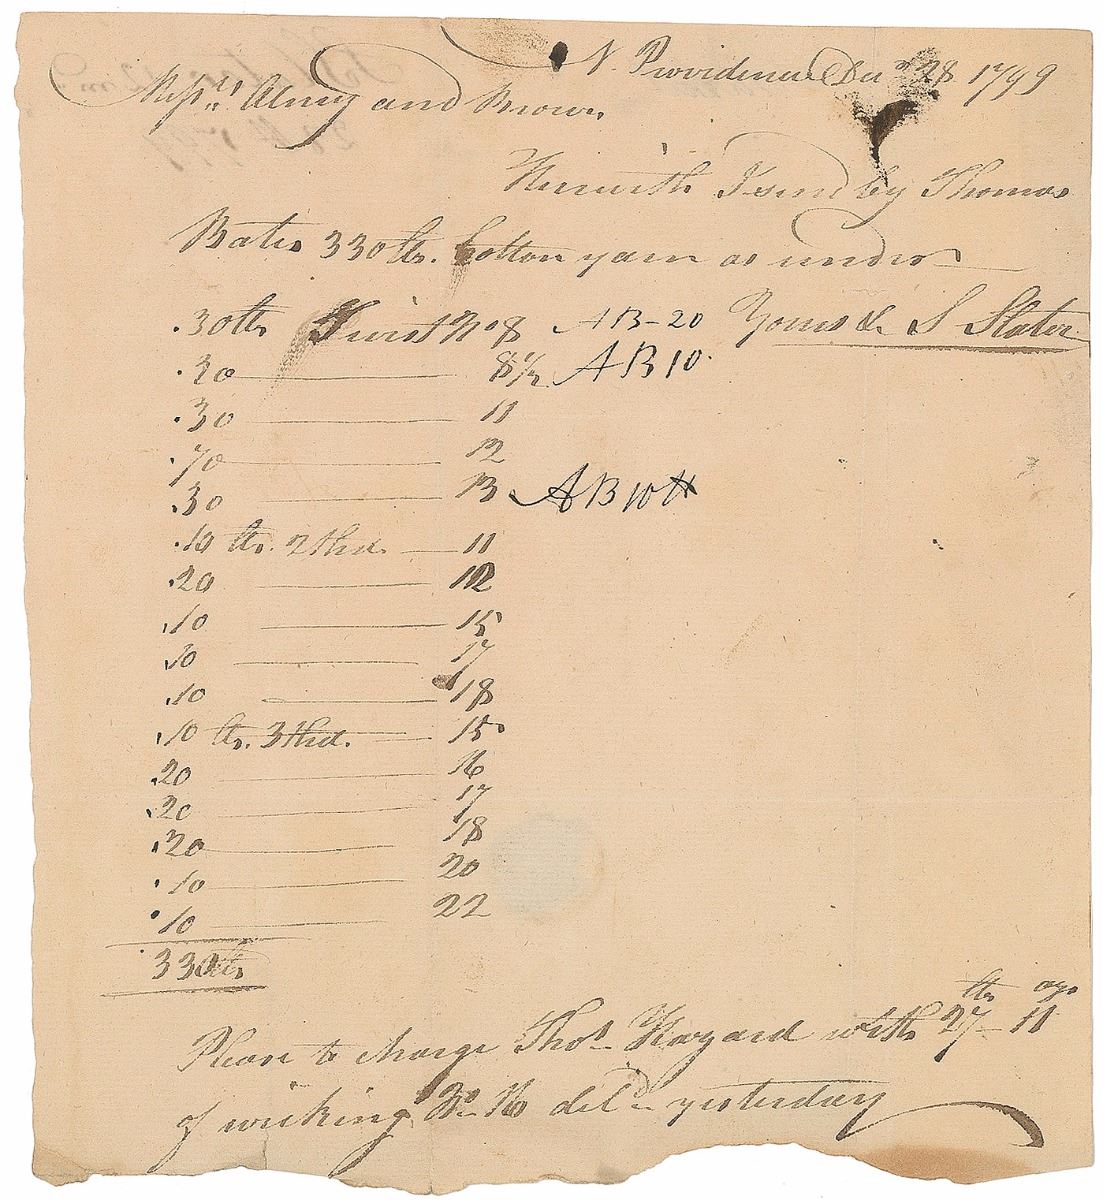 N Providence Decr 28 1799
Messrs Almy and Brown
Herewith I send by Thomas
Bates 330 lbs. Cotton yarn as under
Yours &c S Slater
.30 lbs Twist No 8 AB-20
.20 8 1/2 AB 10
.30 11
.70 12
.30 13 AB 10 H
.10 lbs. 2 thd. 11
.20 12
.10 15
.10 17
.10 18
.10 lbs. 3 thd. 15
.20 16
.20 17
.20 18
.10 20
.10 22
330 lbs
lbs ozs
Please to charge Thos Hazard with 27 - 11
of wicking No 16 deld yesterday